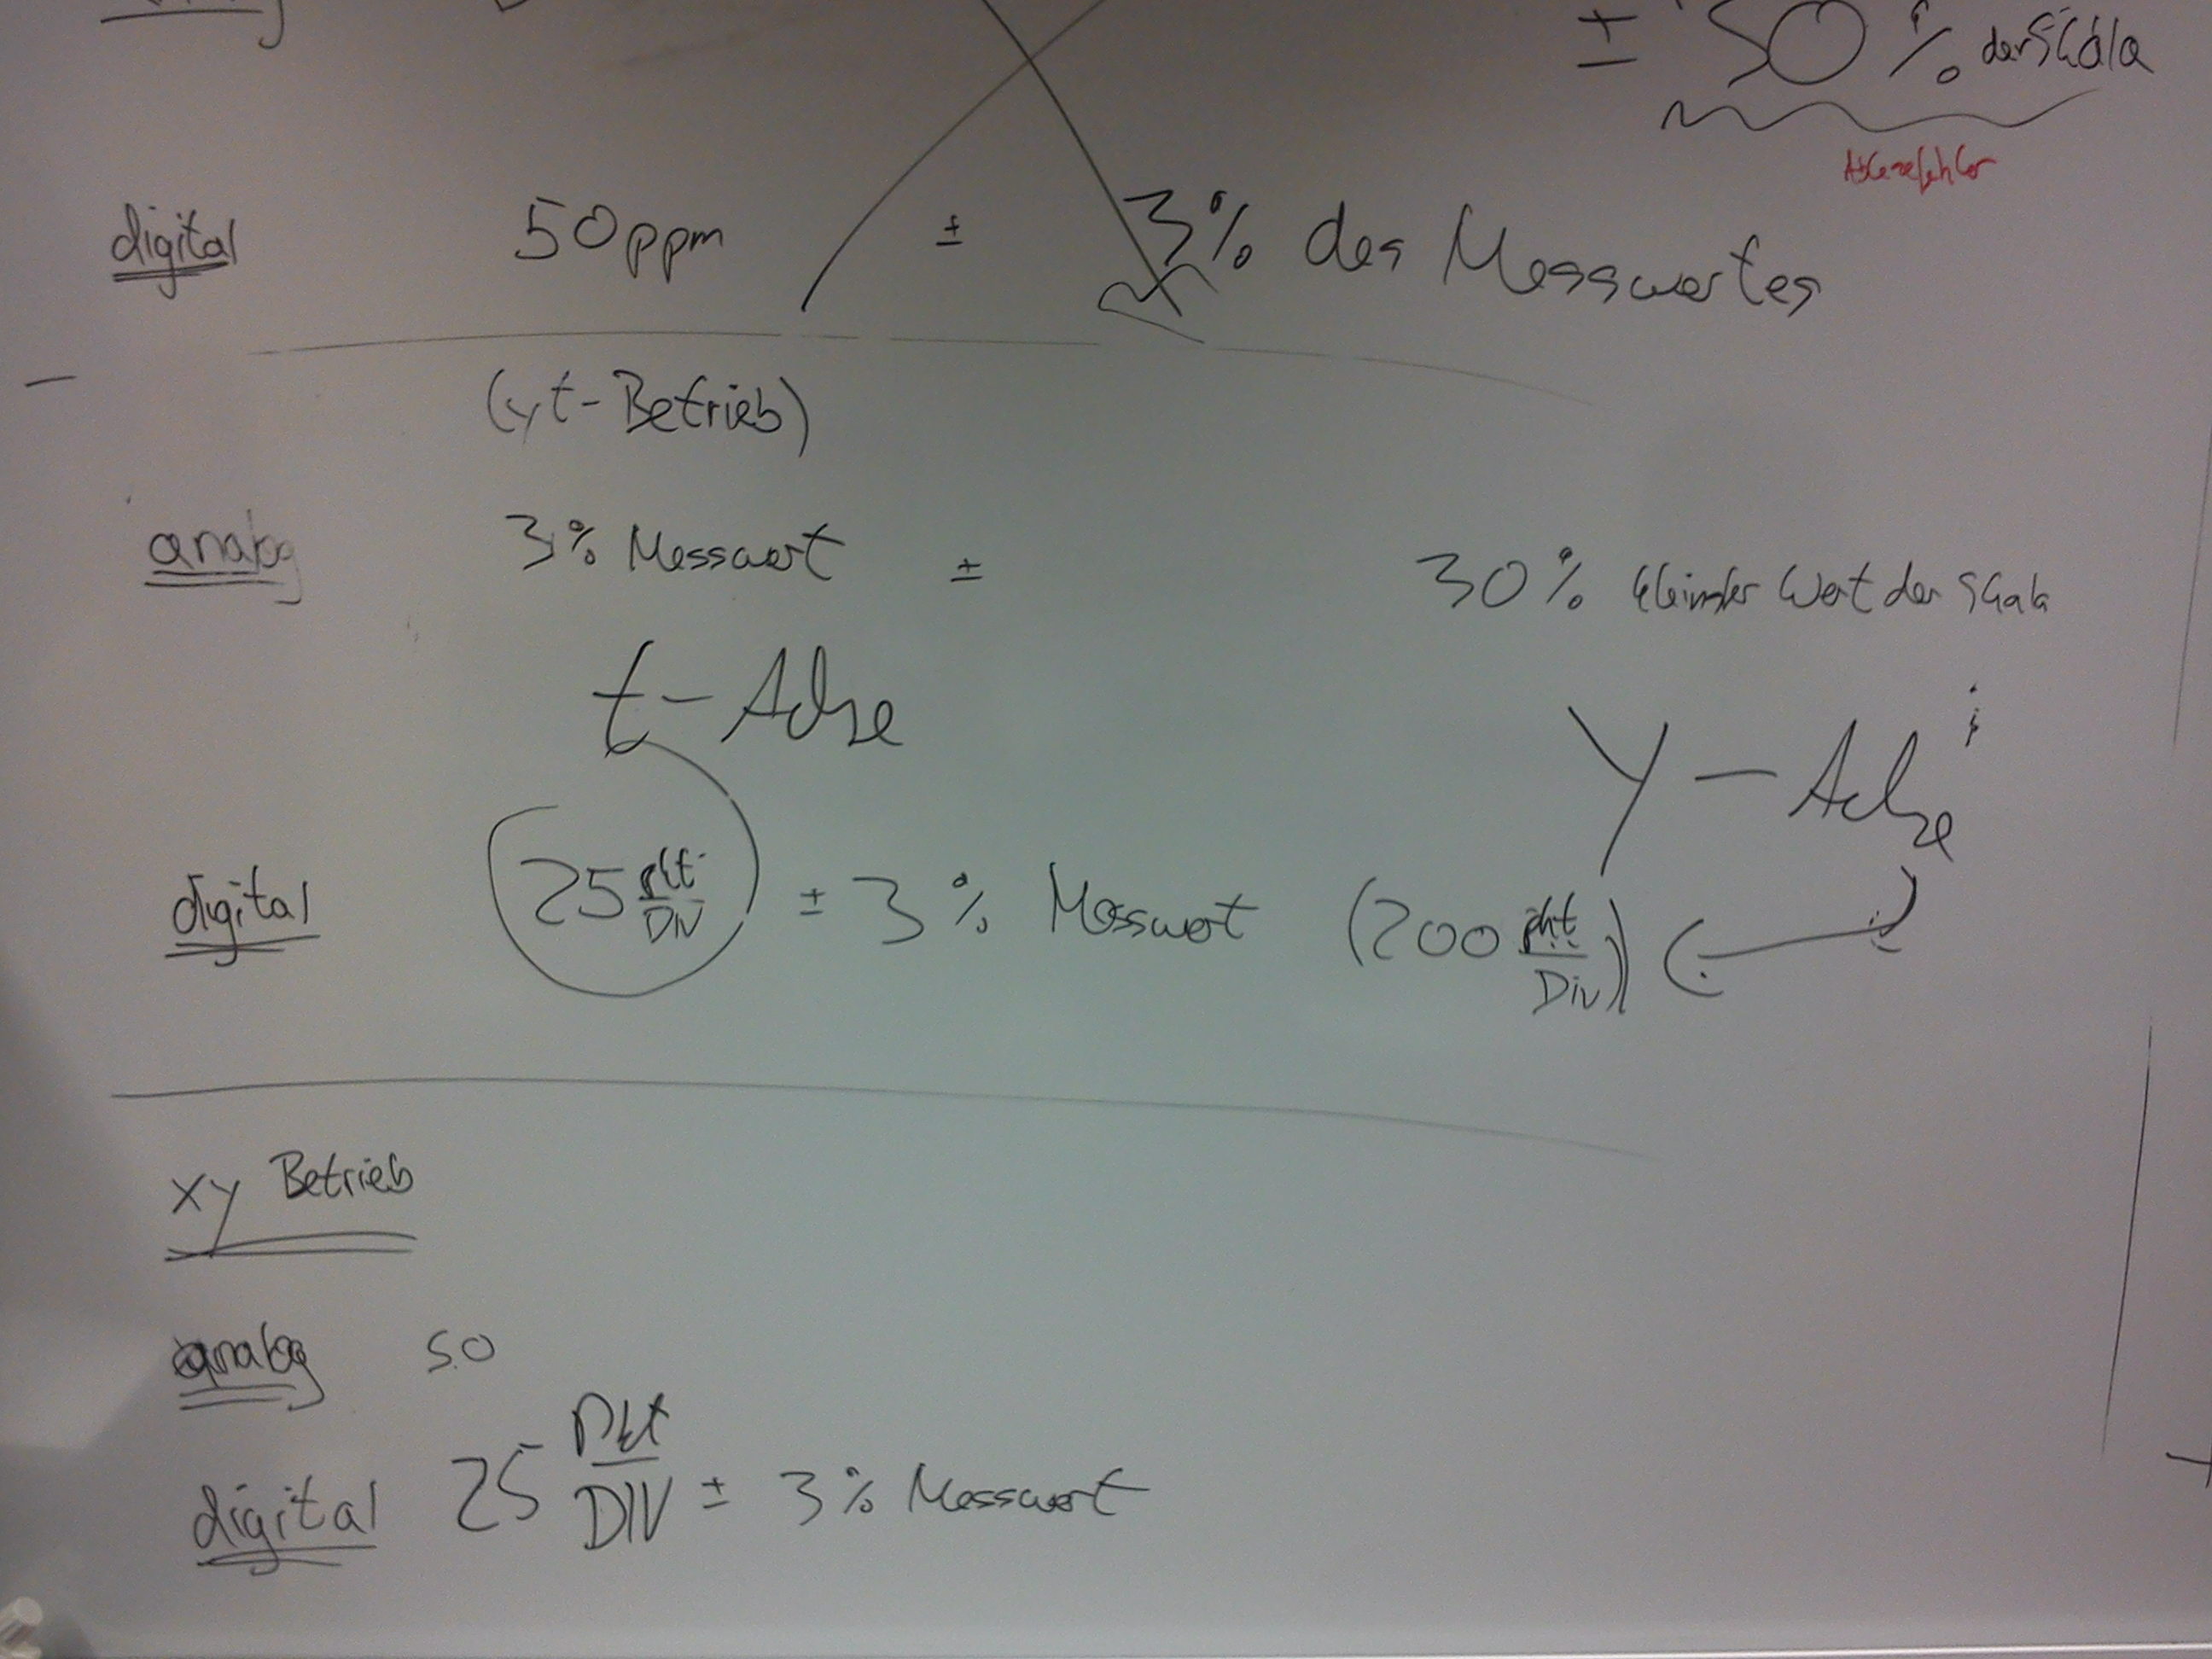 ± 50% der Skala
Ablesefehler
digital 50ppm ± 3% des Messwertes
(yt-Betrieb)
analog 3% Messwert ± 30% kleinster Wert der Skala
t-Achse
Y-Achse
digital 25 pkt/DIV ± 3% Messwert (200 pkt/Div)
xy Betrieb
analog s.o
digital 25 Pkt/DIV ± 3% Messwert